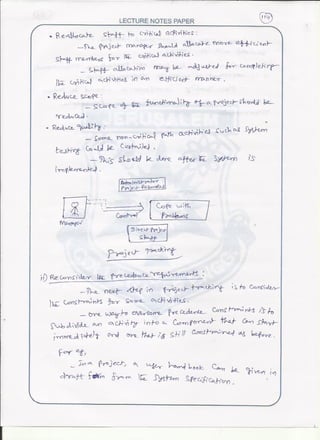 LECTURE NOTES PAPER
• Reallocate staff to critical activities:
– The project manager should allocate more efficient
staff members for the critical activities.
– Staff allocation may be adjusted for completing
the critical activities in an efficient manner.
• Reduce scope:
– Scope of the functionality of a project should be
reduced.
• Reduce quality:
– Some non-critical path activities such as system
testing could be curtailed.
– This should be done after the system is
implemented.
Administrator
Project
Manager
Control
Cope with
Problems
Direct Project
Staff
Project tracking
ii) Reconsider the precedence requirements:
– The next step in project tracking is to consider
the constraints for some activities.
– One way to overcome precedence constraints is to
subdivide an activity into a component that can start
immediately and one that is still constrained as before.
For eg,
– In a project, a user hand book can be given in
draft form from the system specification.